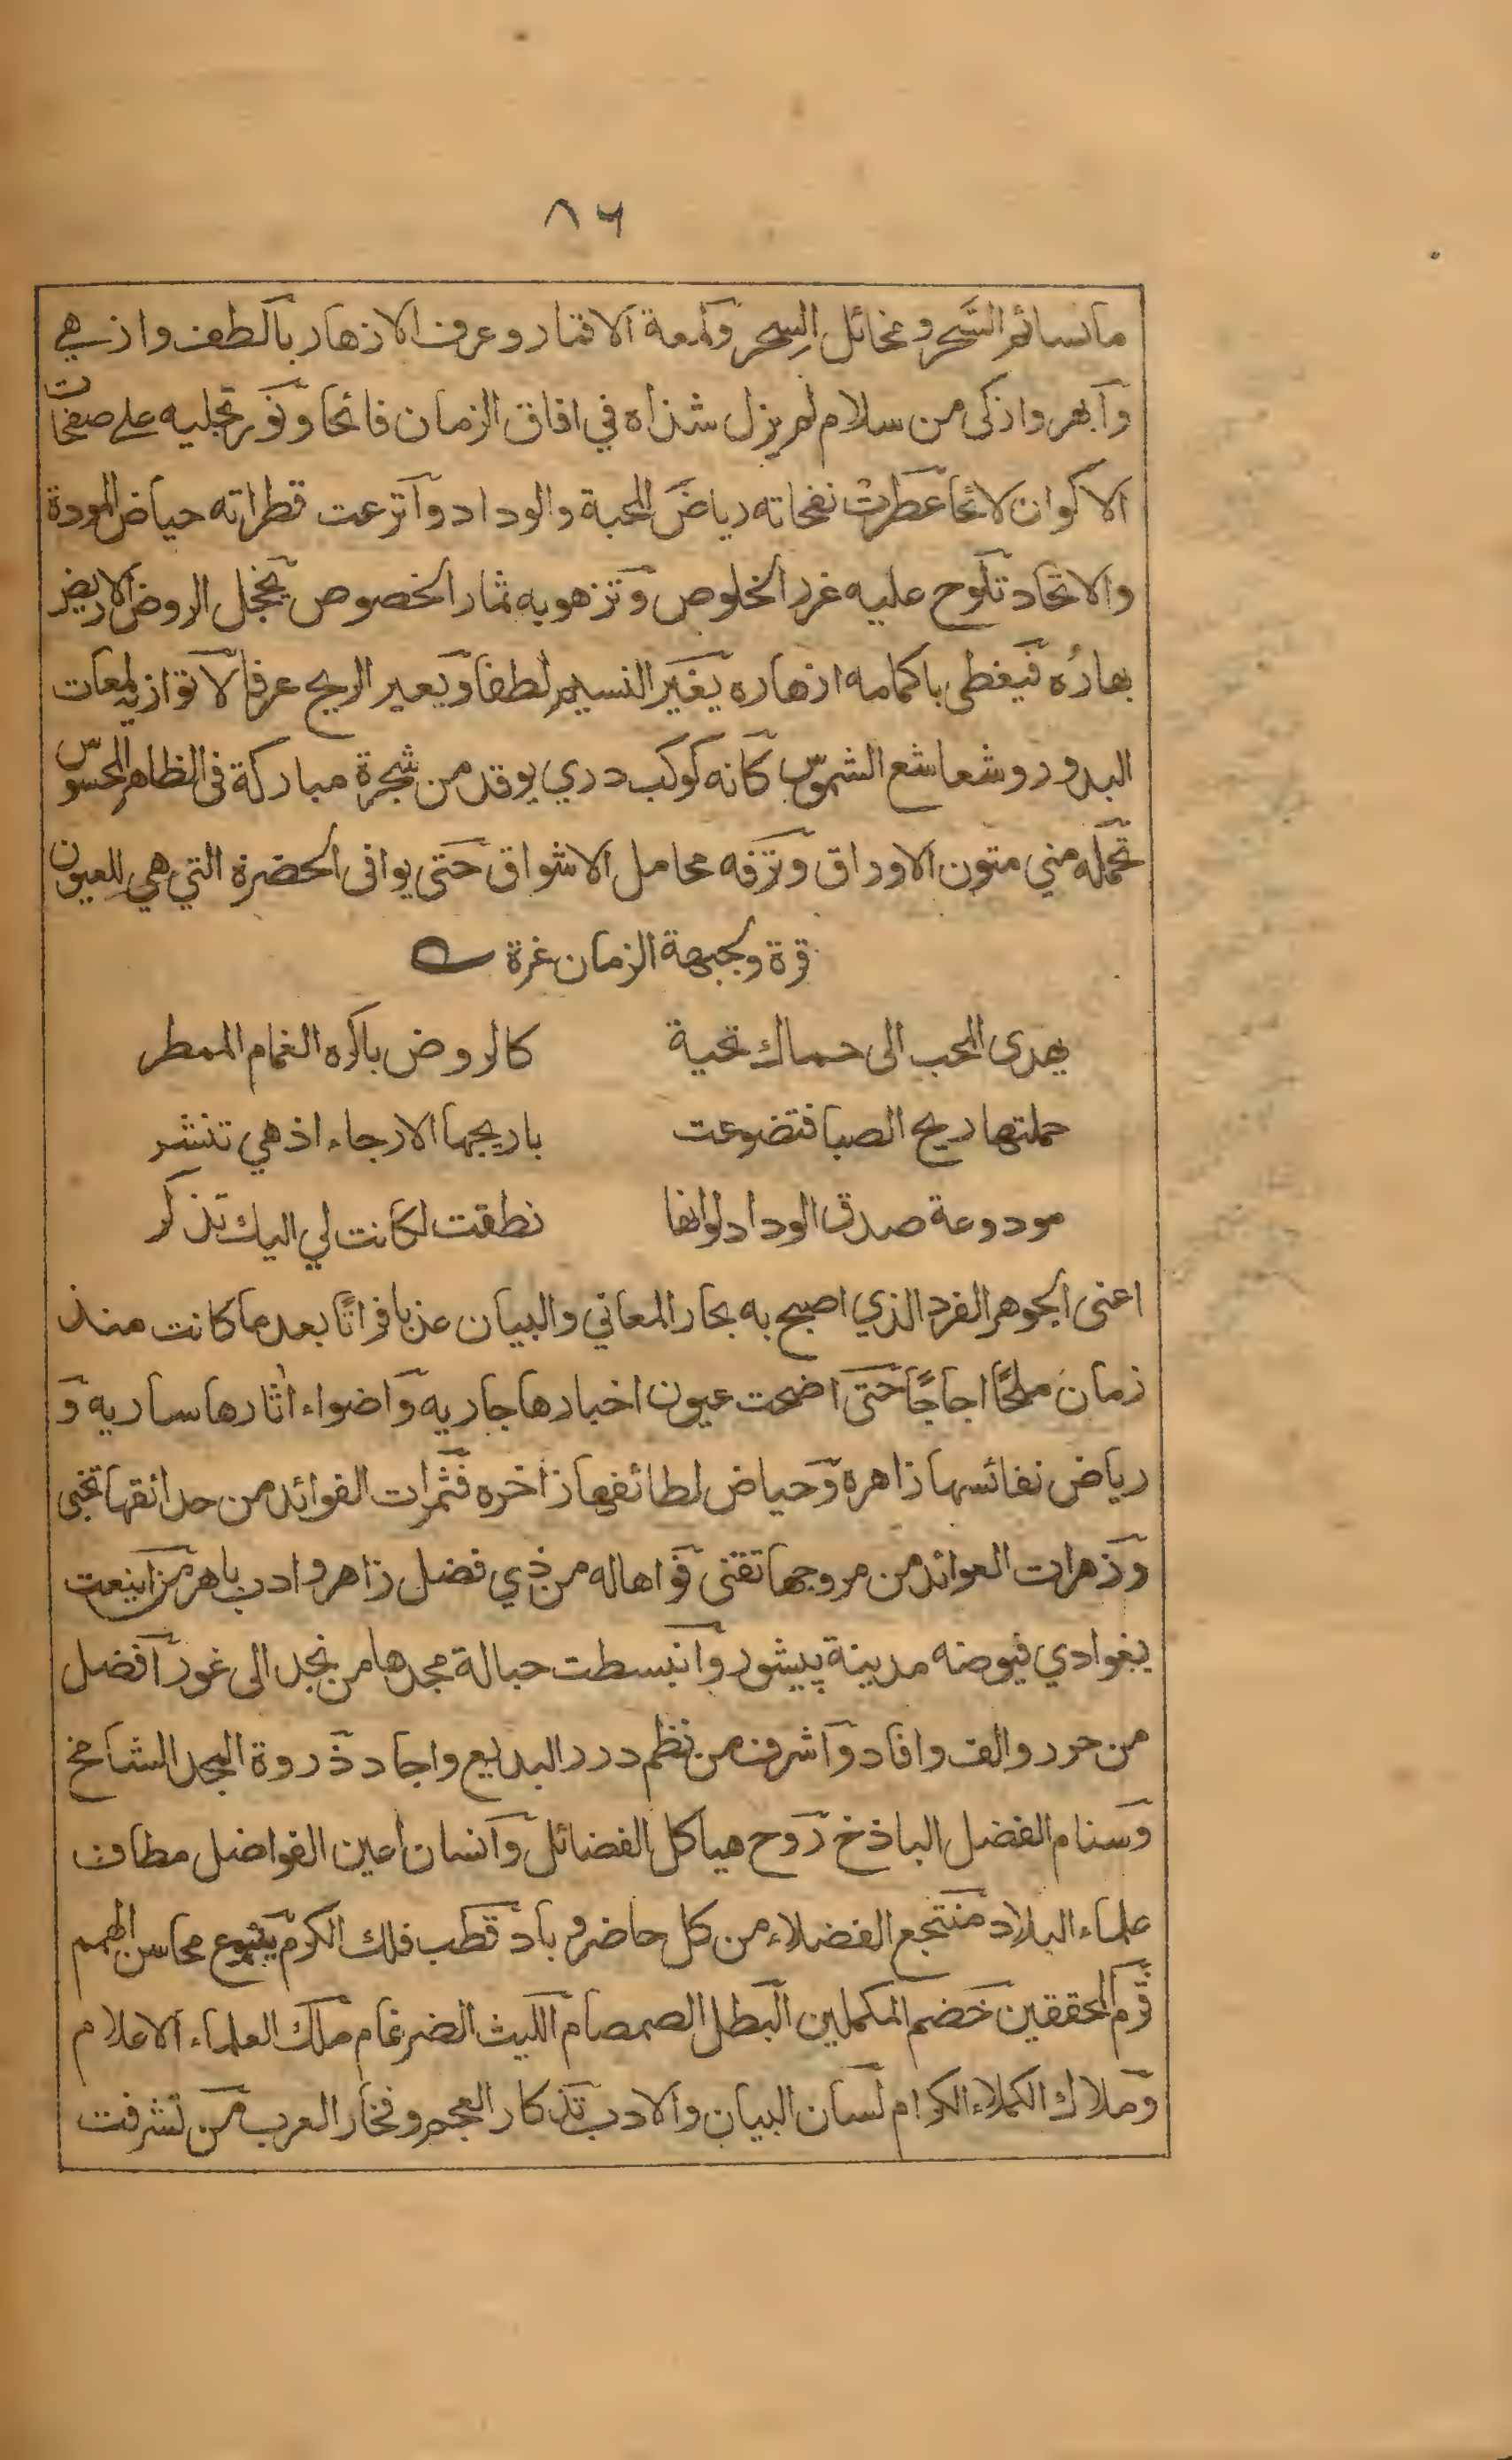 ٨٦
ما نسائم السَّحر وخمائل السِحر ولمعة الاقمار وعرف الازهار بالطف وازهي
وابهر واذكى من سلام لم يزل شذاه في افاق الزمان فائحا ونور تجليه على صفحات
الاكوان لائحا عطرت نفحاته رياض المحبة والوداد واترعت قطراته حياض المودة
والاتحاد تلوح عليه غرر الخلوص وتزهو به ثمار الخصوص يخجل الروض الاريض
بهارُه فيغطى باكمامه ازهاره يغير النسيم لطفا ويعير الريح عرفا لا توازيه لمعات
البدور وشعاشع الشموس كانه كوكب دري يوقد من شجرة مباركة في الظاهر المحسوس
تحمله مني متون الاوراق وتزفه محامل الاشواق حتى يوافى الحضرة التي هي للعيون
قرة ولجبهة الزمان غرة
يهدى المحب الى حماك تحية كالروض باكره الغمام الممطر
حملتها ريح الصبا فتضوعت باريجها الارجاء اذ هي تنشر
مودوعة صدق الوداد لو انها نطقت لكانت لي اليك تذكر
اعنى الجوهر الفرد الذي اصبح به بحار المعاني والبيان عذبا فراتًا بعد ما كانت منذ
زمان ملحًا اجاجًا حتى اضحت عيون اخبارها جاريه واضواء اثارها ساريه و
رياض نفائسها زاهرة وحياض لطائفها زاخره فثمرات الفوائد من حدائقها تجنى
وزهرات العوائد من مروجها تقتنى فواها له من ذي فضل زاهر وادب باهر من اينعت
بغوادي فيوضه مدينة پيشور وانبسطت حبالة مجدها من نجد الى غور افضل
من حرر والف وافاد واشرف من نظم درر البديع واجاد ذروة المجد الشامخ
وسنام الفضل الباذخ روح هياكل الفضائل وانسان اعين الفواضل مطاف
علماء البلاد منتجع الفضلاء من كل حاضر وباد قطب فلك الكرم ينبوع محاسن الهمم
قرم المحققين خضم المكملين البطل الصمصام الليث الضرغام ملك العلماء الاعلام
وملاك الكملاء الكرام لسان البيان والادب تذكار العجم وفخار العرب من تشرفت